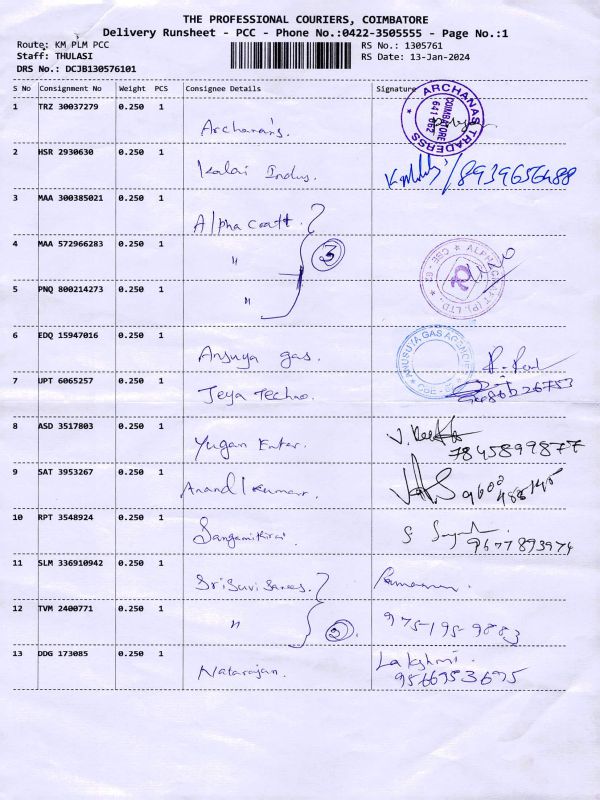 THE PROFESSIONAL COURIERS, COIMBATORE
Delivery Runsheet - PCC - Phone No.:0422-3505555 - Page No.:1
Route: KM PLM PCC
RS No.: 1305761
Staff: THULASI
RS Date: 13-Jan-2024
DRS No.: DCJB130576101
S No Consignment No Weight PCS Consignee Details Signature
1 TRZ 30037279 0.250 1 Archana's.
ARCHANAS TRADERSS COIMBATORE 641 062
2 HSR 2930630 0.250 1 Kalai Indus. 8939656488
3 MAA 300385021 0.250 1 Alpha craft.
4 MAA 572966283 0.250 1 " 3
5 PNQ 800214273 0.250 1 "
6 EDQ 15947016 0.250 1 Ansuya gas.
ANUSUYA GAS AGENCIES
7 UPT 6065257 0.250 1 Jeya Techno.
8 ASD 3517803 0.250 1 Yugan Enter.
7845899877
9 SAT 3953267 0.250 1 Anand Kumar.
10 RPT 3548924 0.250 1 Sangamitirai
9677893974
11 SLM 336910942 0.250 1
12 TVM 2400771 0.250 1 " 2 975-195-9883
13 DDG 173085 0.250 1 Natarajan. Lakshmi.
9566953695